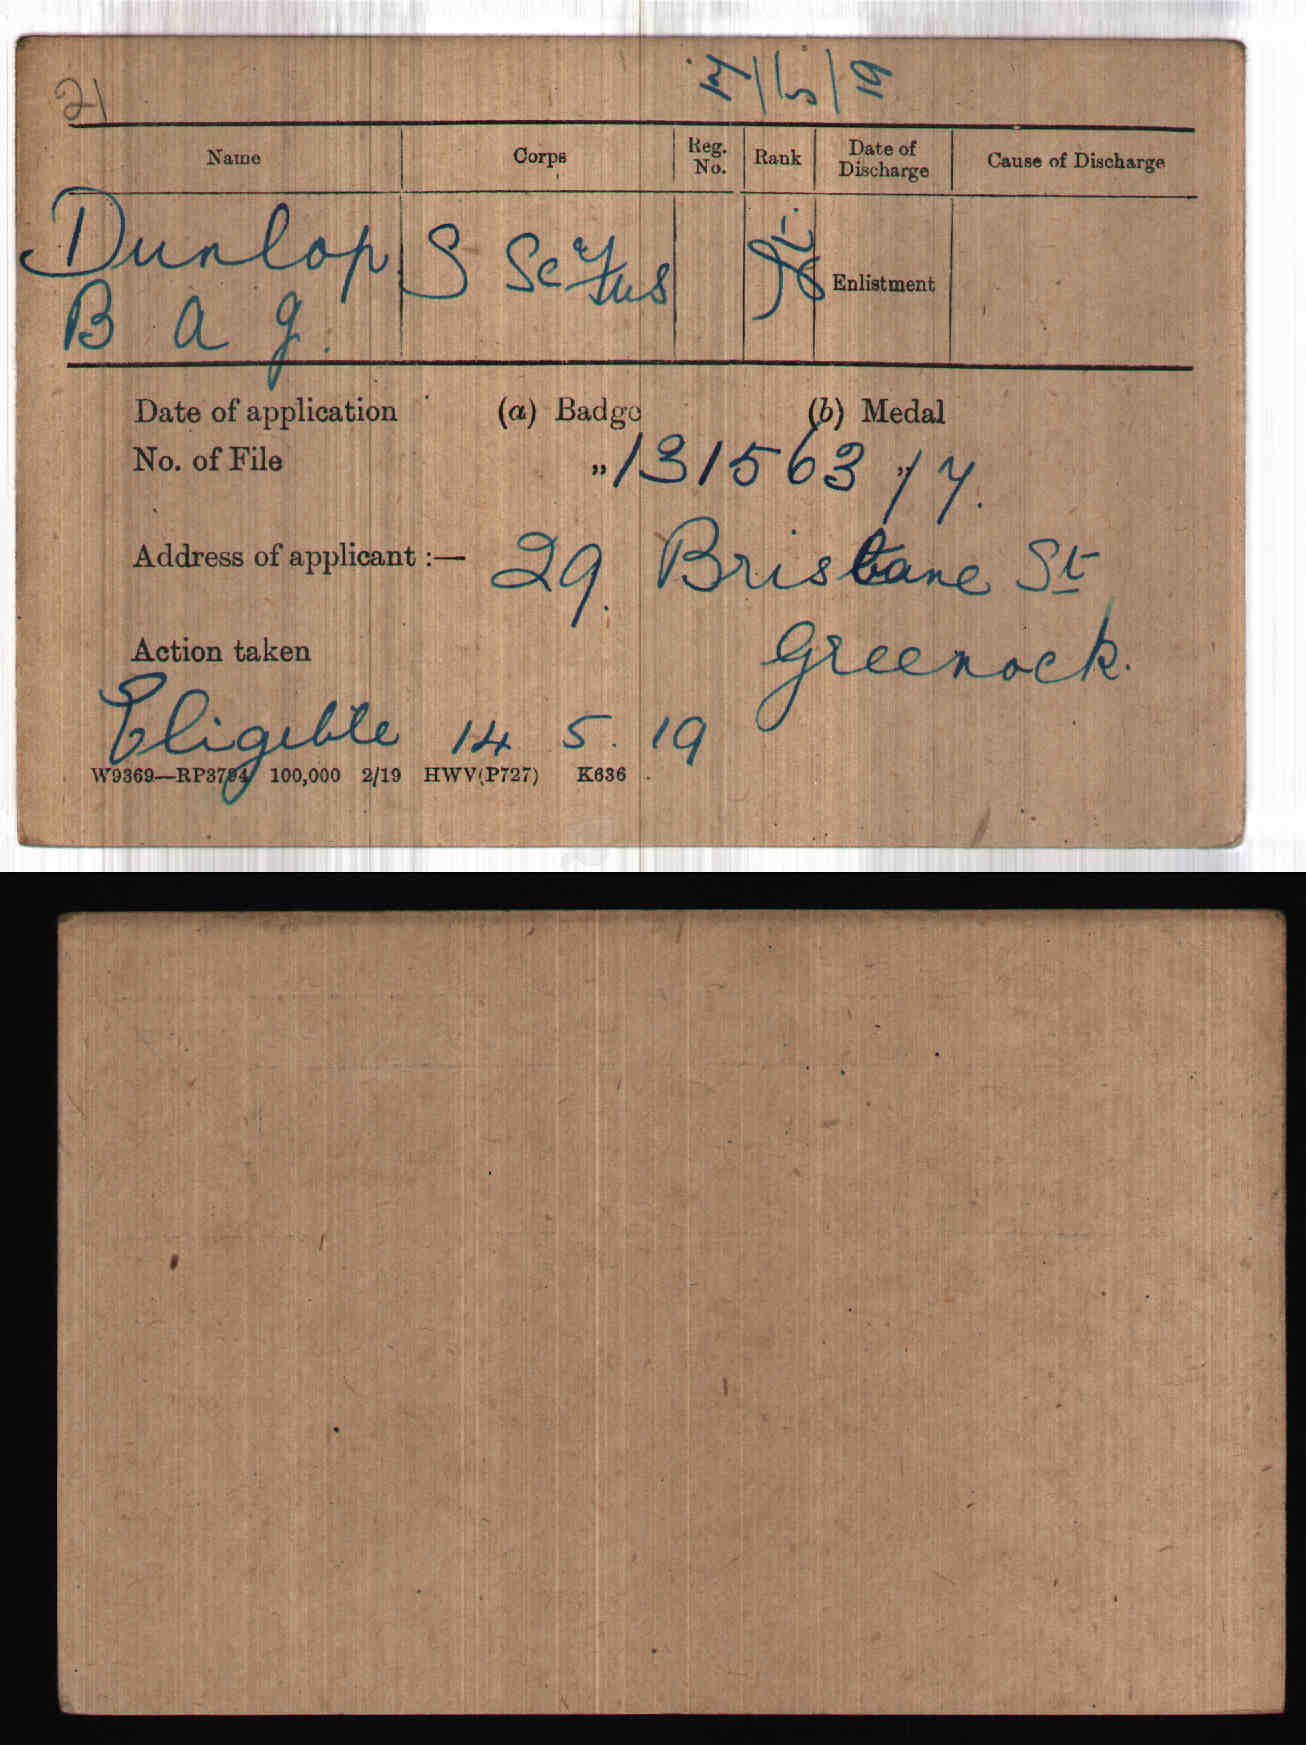 21
Name Corps Reg. No. Rank Date of Discharge Cause of Discharge
Dunlop S Sco Fus Lt. Enlistment
B A G.
Date of application (a) Badge (b) Medal
No. of File „ 131563 „ /7.
Address of applicant :— 29. Brisbane St
Greenock.
Action taken
Eligible 14 5. 19
W9369—RP3794 100,000 2/19 HWV(P727) K636